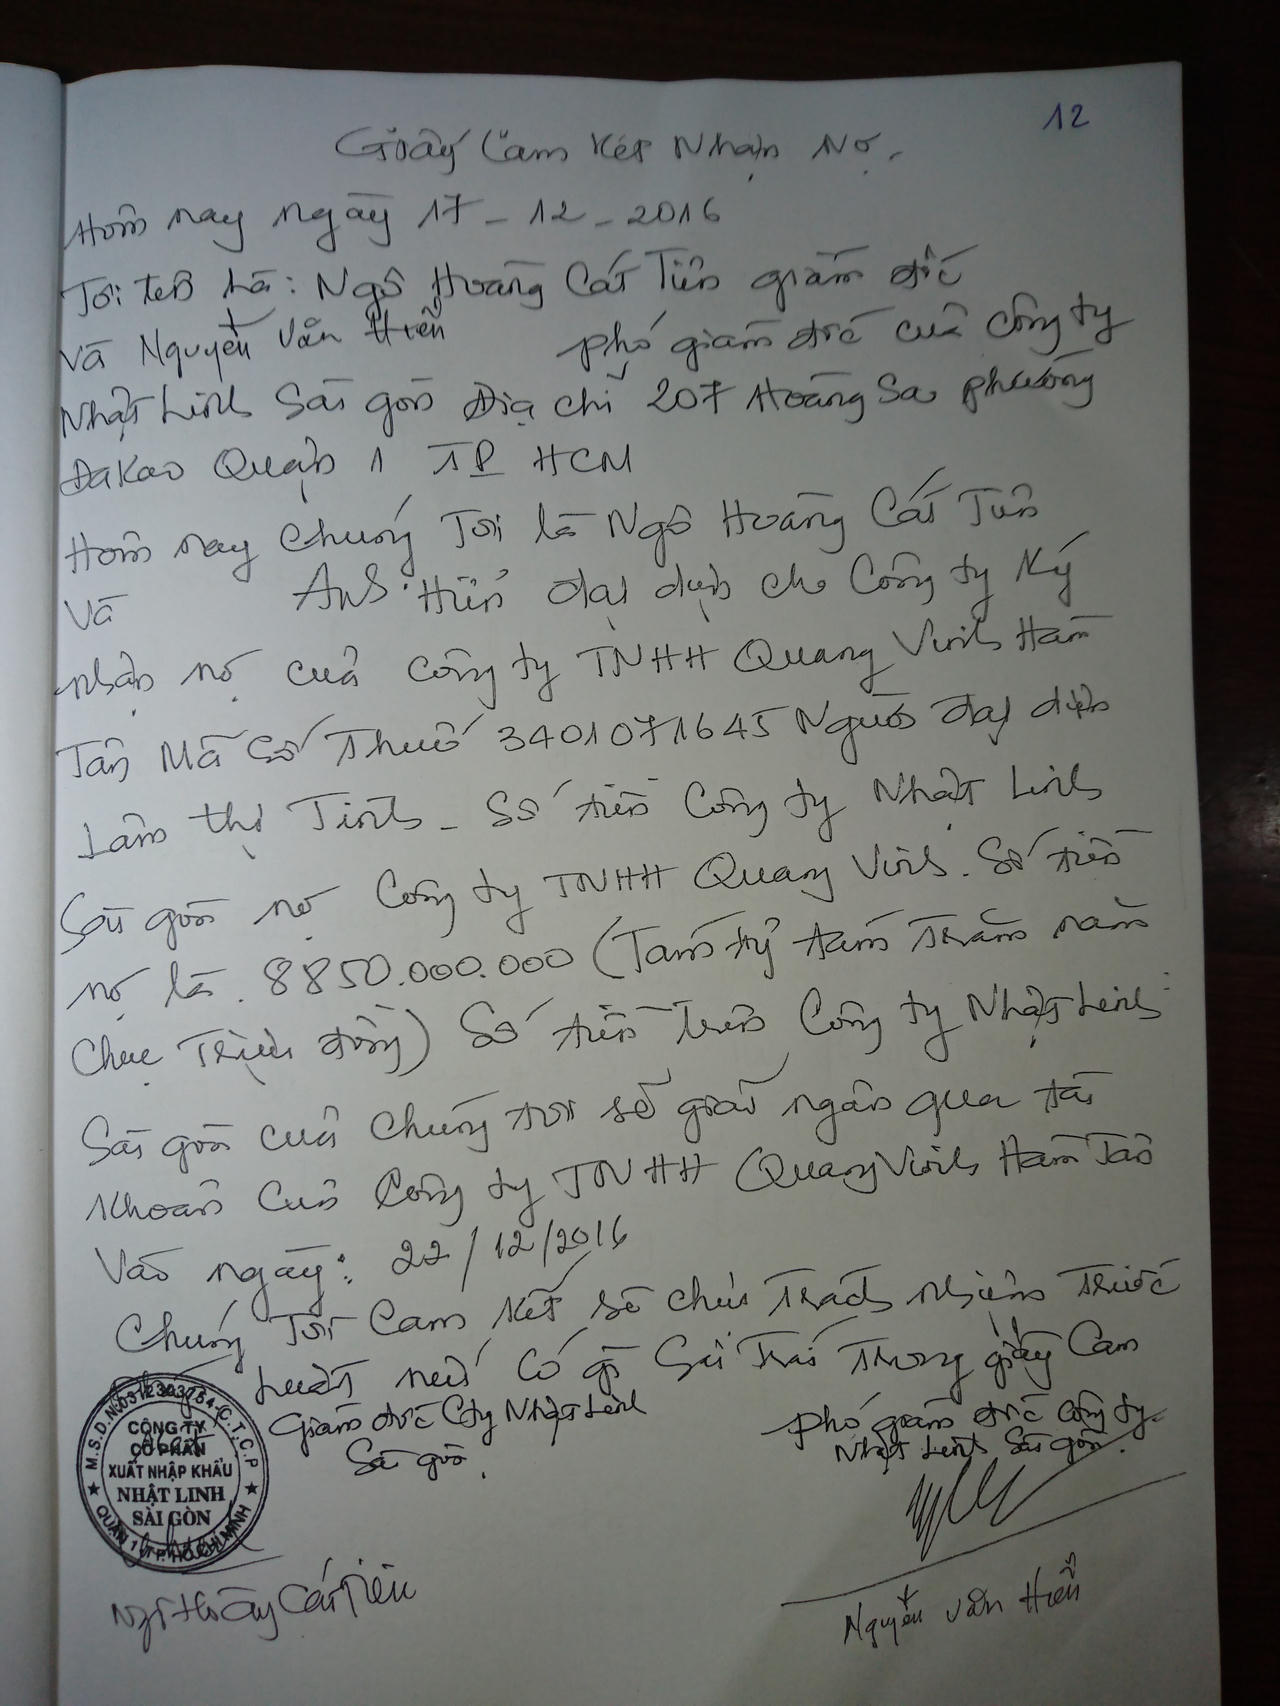 12
Giấy Cam Kết Nhận Nợ.
Hôm nay ngày 17-12-2016
Tôi tên là: Ngô Hoàng Cát Tiên giám đốc
Và Nguyễn Văn Hiển phó giám đốc của công ty
Nhật Linh Sài gòn Địa chỉ 207 Hoàng Sa phường
Đakao Quận 1 TP HCM
Hôm nay Chúng Tôi là Ngô Hoàng Cát Tiên
Và Anh Hiển đại diện cho Công ty Ký
nhận nợ của Công ty TNHH Quang Vinh Hàm
Tân Mã Số Thuế 3401071645 Người đại diện
Lâm thị Tính - Số tiền Công ty Nhật Linh
Sài gòn nợ Công ty TNHH Quang Vinh. Số tiền
nợ là. 8850.000.000 (Tám tỷ tám Trăm năm
Chục Triệu đồng) Số tiền trên Công ty Nhật Linh
Sài gòn của Chúng tôi sẽ giải ngân qua tài
Khoản Của Công ty TNHH Quang Vinh Hàm Tân
Vào ngày: 22/12/2016
Chúng Tôi Cam Kết sẽ chịu Trách nhiệm Trước
luật nếu Có gì Sai Trái Trong giấy Cam
Giám đốc Cty Nhật Linh
Sài gòn.
phó giám đốc Công ty
Nhật Linh Sài gòn.
M.S.D.N:0312303754-C.T.C.P
CÔNG TY
CỔ PHẦN
XUẤT NHẬP KHẨU
NHẬT LINH
SÀI GÒN
QUẬN 1 - T.P. HỒ CHÍ MINH
Ngô Hoàng Cát Tiên
Nguyễn Văn Hiển